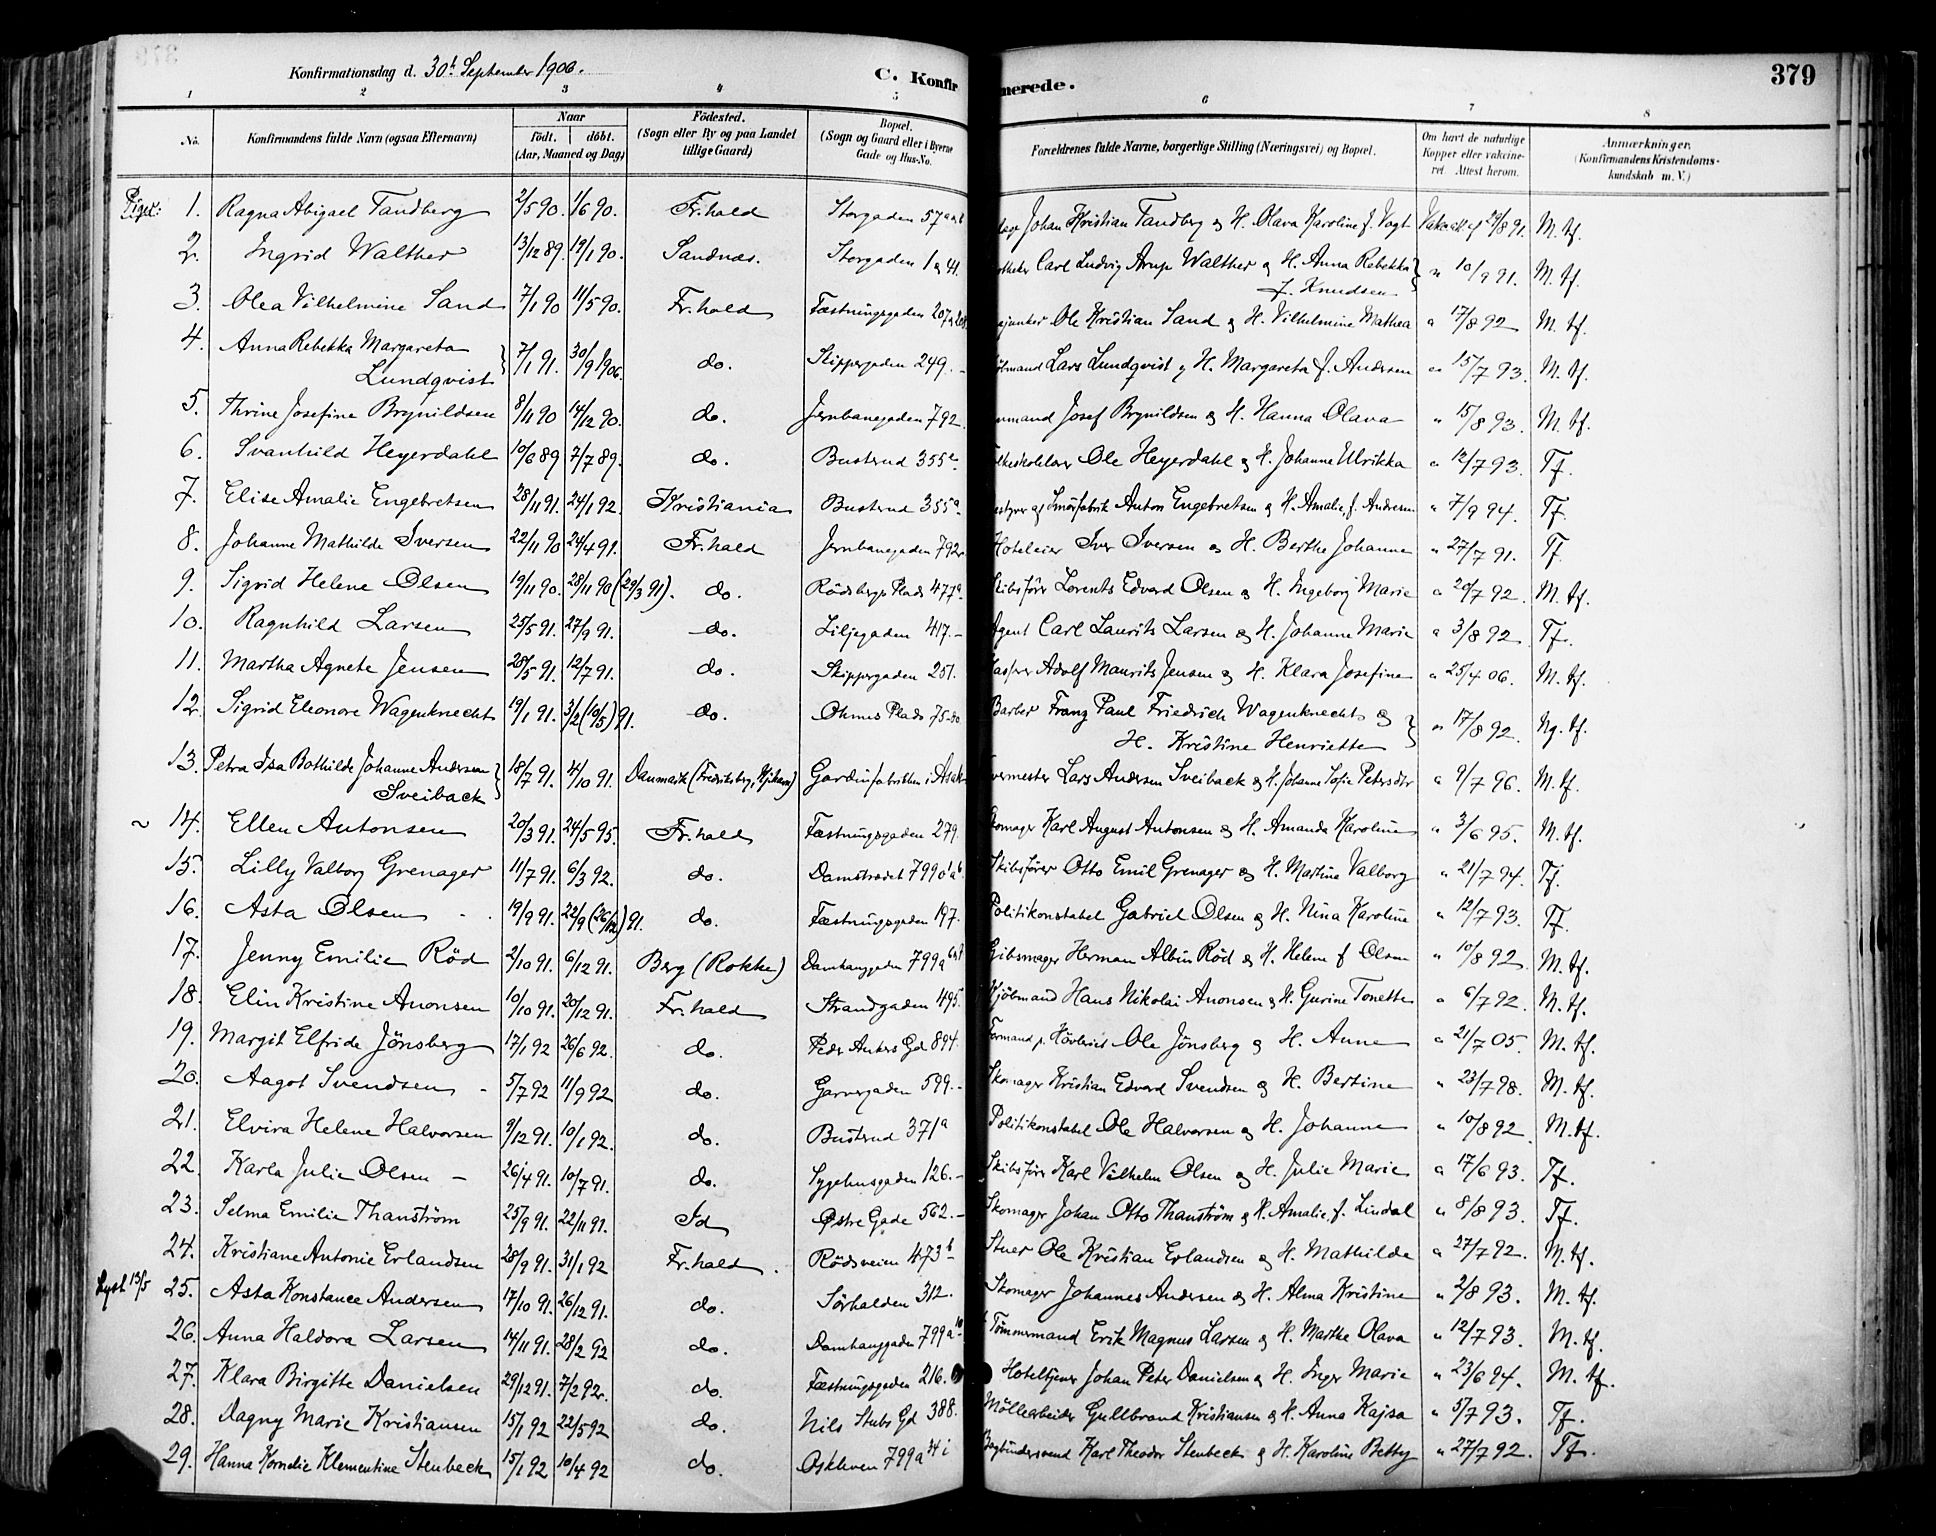 Konfirmationsdag d. 30t September 1906.
C. Konfirmerede. 379
1 2 3 4 5 6 7 8
No. Konfirmandens fulde Navn (ogsaa Efternavn) Naar født. døbt. (Aar, Maaned og Dag) Fødested. (Sogn eller By og paa Landet tillige Gaard) Bopæl. (Sogn og Gaard eller i Byerne Gade og Hus-No. Forældrenes fulde Navne, borgerlige Stilling (Næringsvei) og Bopæl. Om havt de naturlige Kopper eller vakcineret. Attest herom. Anmærkninger. (Konfirmandens Kristendomskundskab m. V.)
Piger:
1. Ragna Abigael Tandberg 2/5 90. 1/6 90. Fr.hald Storgaden 57 Johan Kristian Tandberg og H. Olava Karoline f. Vogt 29/8 91. M. tf.
2. Ingrid Walther 13/12 89. 19/1 90. Sandnæs. Storgaden 1 og 41. Carl Ludvig Arup Walther og H. Anna Rebekka f. Knudsen " 10/9 91. M. tf.
3. Olea Vilhelmine Sand 7/1 90 11/5 90. Fr.hald Fæstningsgaden 207 Ole Kristian Sand og H. Vilhelmine Mathea " 17/8 92 M. tf.
4. Anna Rebekka Margareta Lundqvist 7/1 91. 30/9 1906. do. Skippergaden 249. Lars Lundqvist og H. Margareta f. Andersen " 15/7 93. M. tf.
5. Thrine Josefine Brynildsen 8/11 90 14/12 90. do. Jernbanegaden 792. Josef Brynildsen og H. Hanna Olava " 15/8 93. M. tf.
6. Svanhild Heyerdahl 10/6 89 7/7 89. do. Busterud 355 Ole Heyerdahl og H. Johanne Ulrikka " 12/7 93. Tf.
7. Elise Amalie Engebretsen 28/11 91. 24/1 92. Kristiania Busterud 355a. Smörfabrik Anton Engebretsen og H. Amalie, f. Andersen " 7/9 94. Tf.
8. Johanne Mathilde Iversen 22/11 90 24/4 91. Fr.hald Jernbanegaden 792 Hoteleier Iver Iversen og H. Berthe Johanne " 27/7 91. Tf
9. Sigrid Helene Olsen 19/11 90. 28/11 90 (29/3 91). do. Rödsbergs Plads 477a. Skibsförer Lorents Edvard Olsen og H. Ingeborg Marie " 20/7 92. M. tf.
10. Ragnhild Larsen 25/5 91. 27/9 91. do. Liljegaden 417.- Agent Carl Laurits Larsen og H. Johanne Marie " 3/8 92. Tf.
11. Martha Agnete Jensen 20/5 91. 12/7 91. do. Skippergaden 251. Adolf Maurits Jensen og H. Klara Josefine " 25/4 06. M. tf.
12. Sigrid Eleonore Wagenknecht 19/1 91. 3/2 (10/5) 91. do. Ohmes Plads 75 Barber Franz Paul Friedrich Wagenknecht og H. Kristine Henriette " 17/8 92. Ng. tf.
13. Petra Isa Bothilde Johanne Andersen Sveiback 18/7 91. 4/10 91. Danmark (Fredriksberg, Kjöbenh.) Gardinfabriken i Asak Lars Andersen Sveiback og H. Johanne Sofie Petersdtr " 9/7 96. M. tf.
~ 14. Ellen Antonsen 20/3 91. 24/5 95. Fr.hald Fæstningsgaden 279. Skomager Karl August Antonsen og H. Amanda Karoline " 3/6 95. M. tf.
15. Lilly Valborg Grenager 11/7 91. 6/3 92. do. Damstrædet 799 Skibsförer Otto Emil Grenager og H. Martine Valborg " 21/7 94. Tf.
16. Asta Olsen 19/9 91. 22/9 (26/12) 91. do. Fæstningsgaden 197. Politikonstabel Gabriel Olsen og H. Nina Karoline " 12/7 93. Tf.
17. Jenny Emilie Röd 2/10 91. 6/12 91. Berg (Rokke) Damhaugaden 799a Gibsmager Herman Albin Röd og H. Helene f Olsen " 10/8 92. M. tf.
18. Elin Kristine Anonsen 10/10 91. 20/12 91. Fr.hald Strandgaden 495. Kjöbmand Hans Nikolai Anonsen og H. Gurine Tonette " 6/7 92. M. tf.
19. Margit Elfride Jönsberg 17/1 92 26/6 92. do. Peder Ankers Gd 894. Formand p. Hövleriet Ole Jönsberg og H. Anne " 21/7 05. M. tf.
20. Aagot Svendsen 5/7 92 11/9 92 do. Garvergaden 599.- Skomager Kristian Edvard Svendsen og H. Bertine " 23/7 98. M. tf.
21. Elvira Helene Halvorsen 9/12 91. 10/1 92. do. Busterud 371a Politikonstabel Ole Halvorsen og H. Johanne " 10/8 92. M. tf.
22. Karla Julie Olsen - 26/4 91. 10/7 91. do. Sygehusgaden 126.- Skibsförer Karl Vilhelm Olsen og H. Julie Marie " 17/6 93. Tf.
23. Selma Emilie Thanström 25/9 91. 22/11 91. Id Østre Gade 562.- Skomager Johan Otto Thanström og H. Amalie, f. Lindal " 8/8 93. Tf.
24. Kristiane Antonie Erlandsen 28/9 91. 31/1 92 Fr.hald. Rödsveien 473b Stuer Ole Kristian Erlandsen og H. Mathilde " 27/7 92. M. tf.
Lyst 13/5 25. Asta Konstance Andersen 17/10 91. 26/12 91. do. Sörhalden 312. Skomager Johannes Andersen og H. Alma Kristine " 2/8 93. M. tf.
26. Anna Haldora Larsen 14/11 91. 28/2 92 do. Damhaugaden 799a Tömmermand Erik Magnus Larsen og H. Marthe Olava " 12/7 93. M. tf.
27. Klara Birgitte Danielsen 29/12 91. 7/2 92. do. Fæstningsgaden 216. Hoteltjener Johan Peter Danielsen og H. Inger Marie " 23/6 94. M. tf.
28. Dagny Marie Kristiansen 15/1 92 22/5 92 do. Nils Stubs Gd 388. Möllearbeider Gullbrand Kristiansen og H. Anna Kajsa " 5/7 93. Tf.
29. Hanna Kornelie Klementine Stenbeck 15/1 92 10/4 92 do. Oskleven 799a Bogbindersvend Karl Theodor Stenbeck og H. Karoline Betty " 27/7 92. Tf.